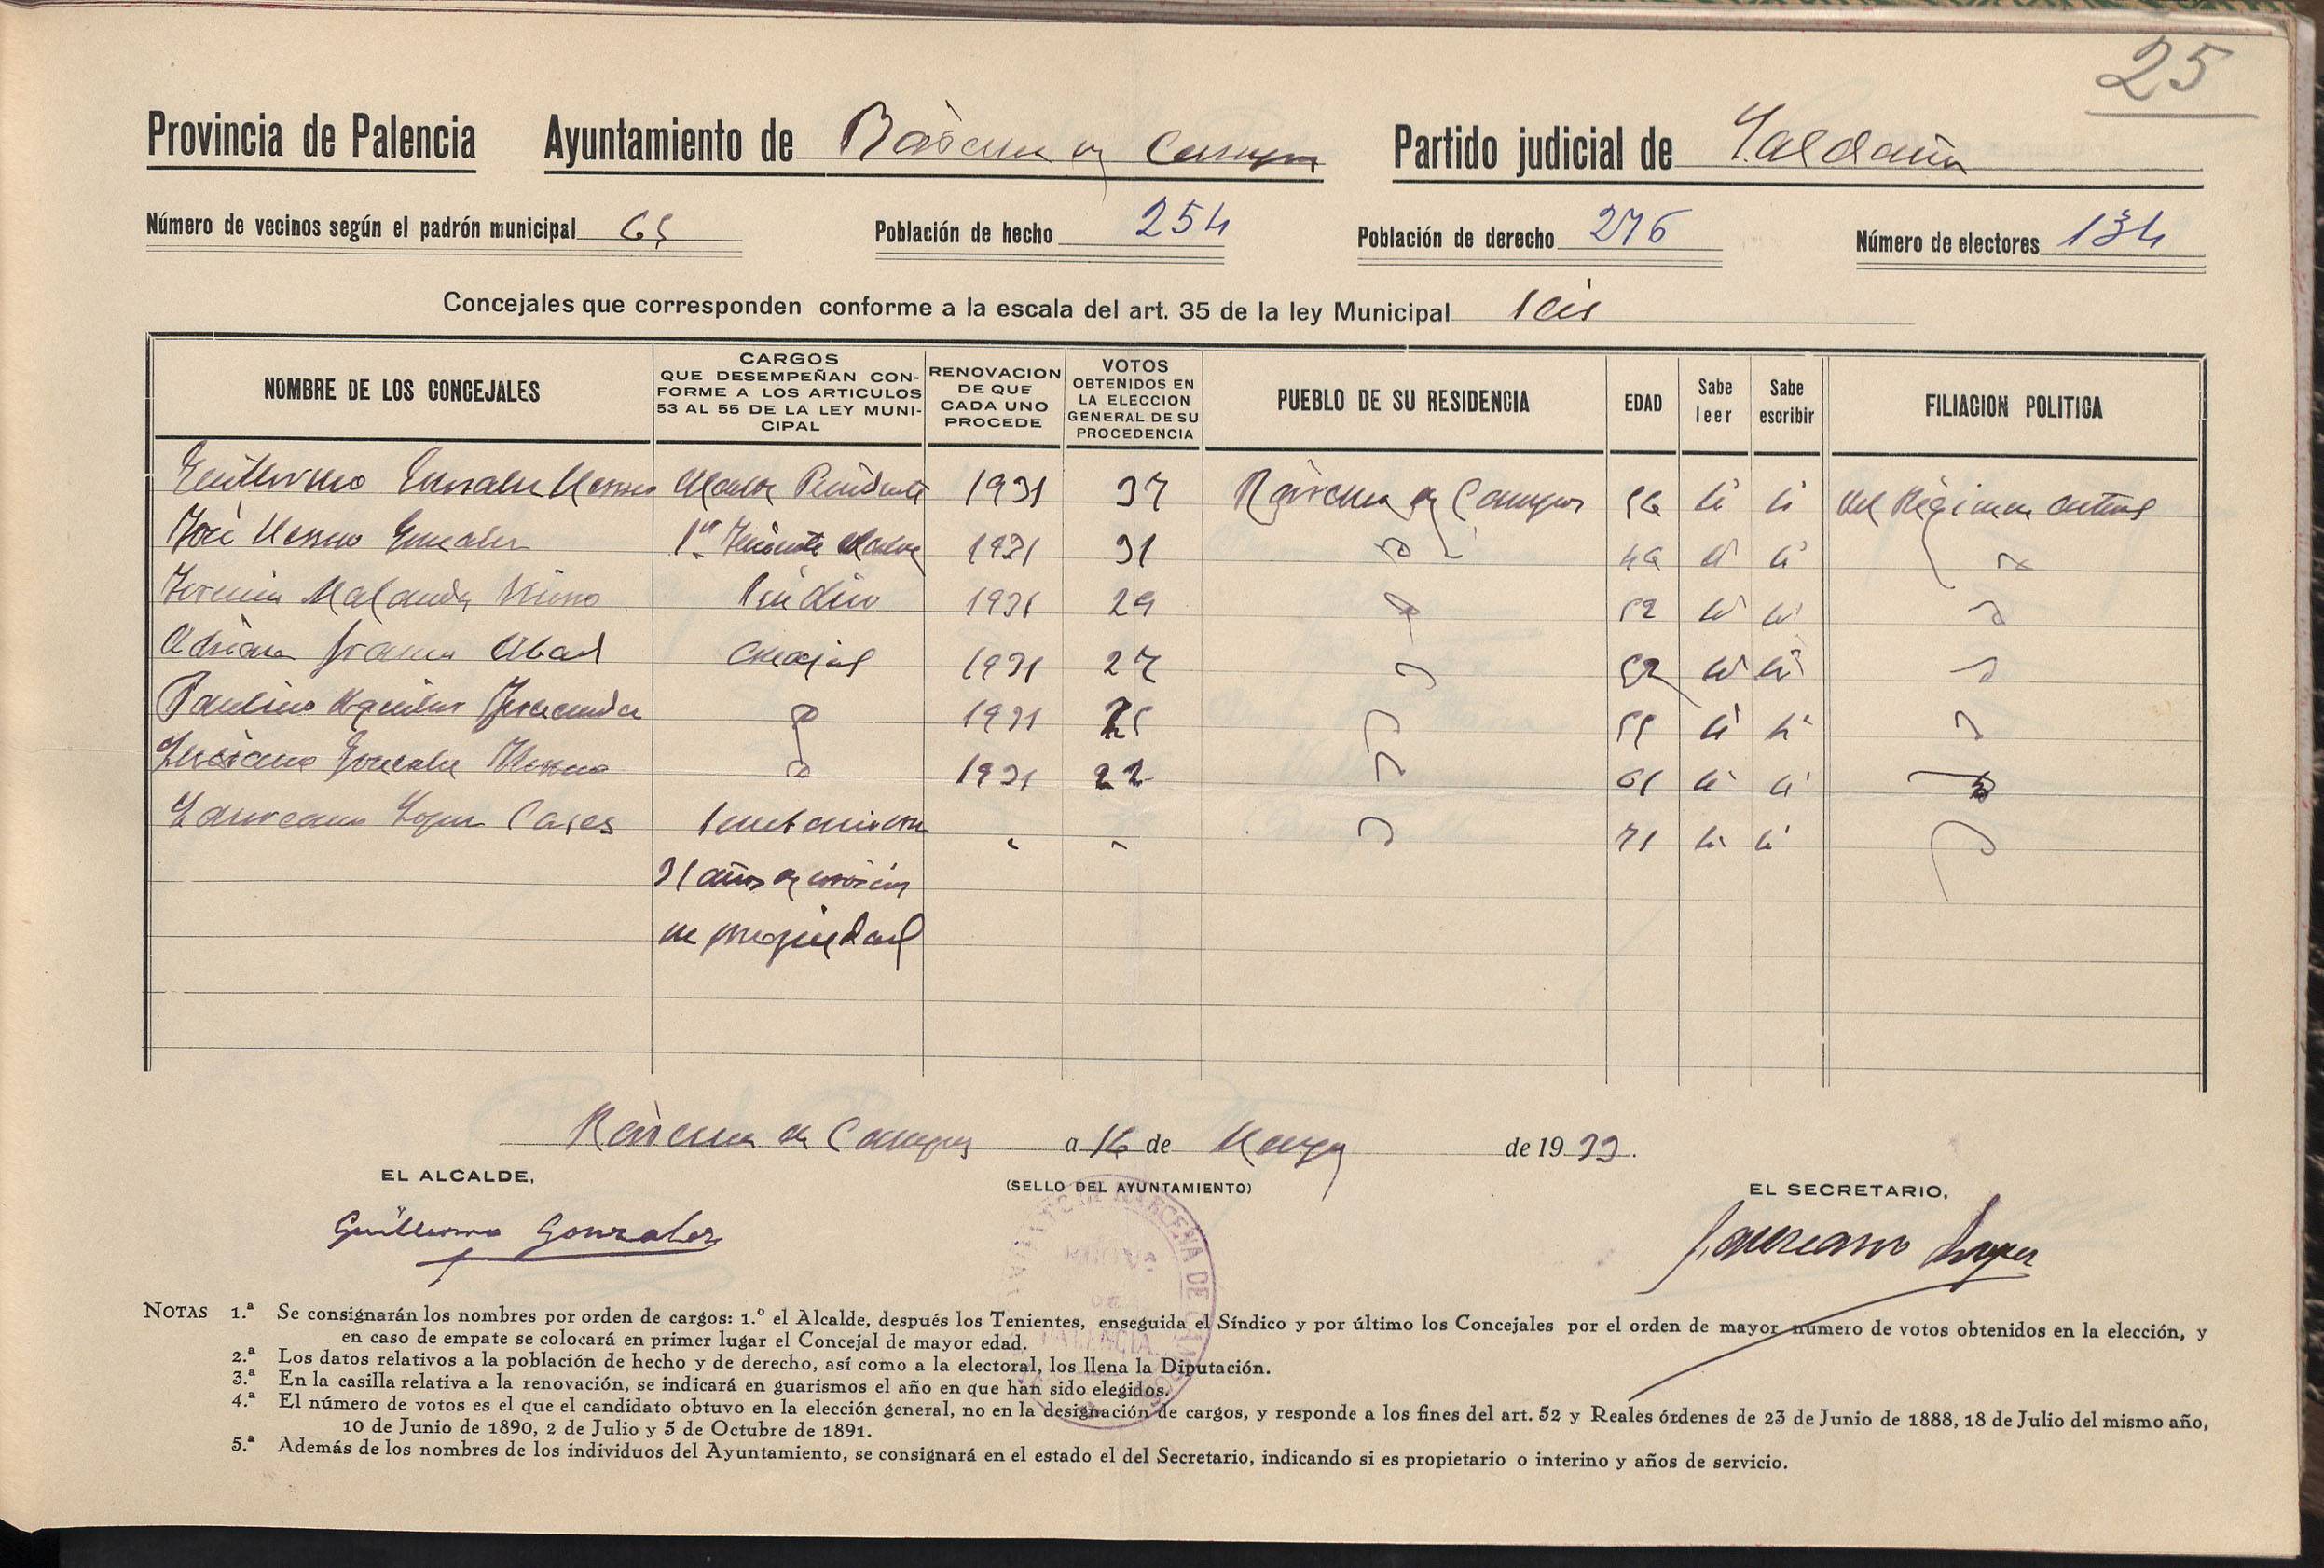 25
Provincia de Palencia Ayuntamiento de Bárcena de Campos Partido judicial de Saldaña
Número de vecinos según el padrón municipal 65 Población de hecho 254 Población de derecho 276 Número de electores 134
Concejales que corresponden conforme a la escala del art. 35 de la ley Municipal seis
NOMBRE DE LOS CONCEJALES CARGOS QUE DESEMPEÑAN CON-FORME A LOS ARTICULOS 53 AL 55 DE LA LEY MUNI-CIPAL RENOVACION DE QUE CADA UNO PROCEDE VOTOS OBTENIDOS EN LA ELECCION GENERAL DE SU PROCEDENCIA PUEBLO DE SU RESIDENCIA EDAD Sabe leer Sabe escribir FILIACION POLITICA
Guillermo Gonzalez Alcalde Presidente 1931 37 Bárcena de Campos 56 si si del Régimen actual
José Gonzalez 1er Teniente Alcalde 1931 31 si si
Fermin Síndico 1931 29 52 si si
Adriano Abad Concejal 1931 27 52 si si
Paulino Aguilar Fernandez 1931 25 55 si si
Luciano Gonzalez 1931 22 61 si si
Laureano Lopez Cases Secretario 71 si si
31 años de servicios
en propiedad
Bárcena de Campos a 16 de Marzo de 1933.
EL ALCALDE, (SELLO DEL AYUNTAMIENTO) EL SECRETARIO,
Guillermo Gonzalez Laureano Lopez
NOTAS 1.ª Se consignarán los nombres por orden de cargos: 1.º el Alcalde, después los Tenientes, enseguida el Síndico y por último los Concejales por el orden de mayor número de votos obtenidos en la elección, y
en caso de empate se colocará en primer lugar el Concejal de mayor edad.
2.ª Los datos relativos a la población de hecho y de derecho, así como a la electoral, los llena la Diputación.
3.ª En la casilla relativa a la renovación, se indicará en guarismos el año en que han sido elegidos.
4.ª El número de votos es el que el candidato obtuvo en la elección general, no en la designación de cargos, y responde a los fines del art. 52 y Reales órdenes de 23 de Junio de 1888, 18 de Julio del mismo año,
10 de Junio de 1890, 2 de Julio y 5 de Octubre de 1891.
5.ª Además de los nombres de los individuos del Ayuntamiento, se consignará en el estado el del Secretario, indicando si es propietario o interino y años de servicio.